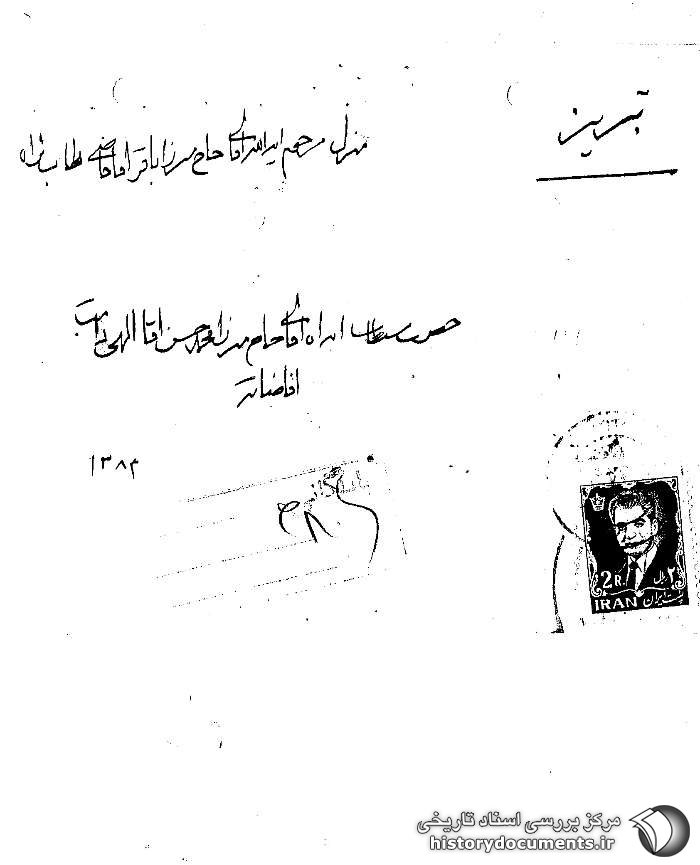 تبریز
منزل مرحوم ایةالله آقای حاج میرزا باقر آقا قاضی طاب ثراه
حضرت مستطاب ایةالله آقای حاج میرزا محمد حسن آقا الهی دامت
افاضاته
۱۳۸۴
بایگانی
2R.
۲ ریال
IRAN
پست ایران
مرکز بررسی اسناد تاریخی
historydocuments.ir